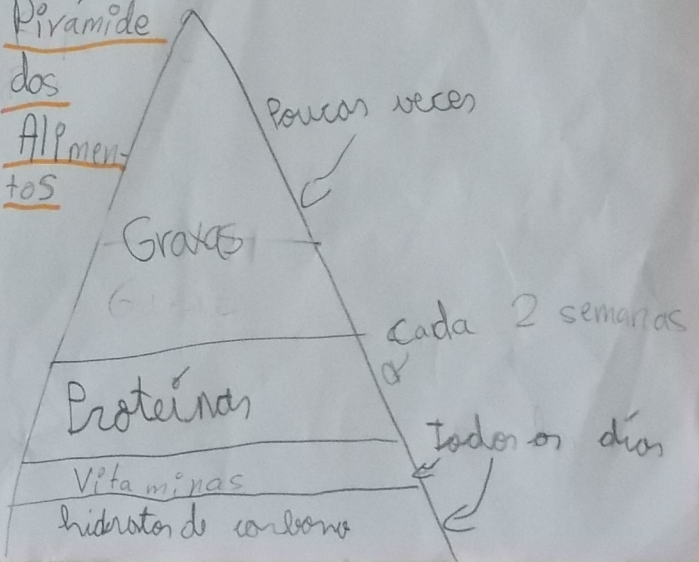 Pirámide
dos
Alimen-
tos
Poucas veces
Graxas
Cada 2 semanas
Proteínas
Todos os días
Vitaminas
hidratos de carbono